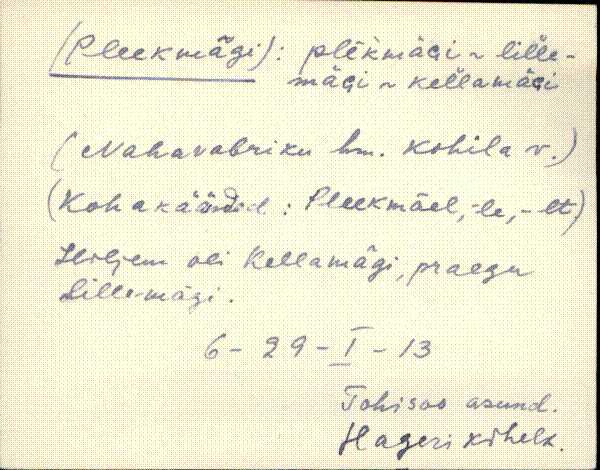 (Pleekmägi): plēkmäGi ~ lille-
mäGi ~ kellamäGi
(Nahavabriku hm. Kohila v.)
(Kohakäänded: Pleekmäel, -le, -lt)
Hiljem oli Kellamägi, praegu
Lillemägi.
6 - 29 - I - 13
Tohisoo asund.
Hageri kihelk.